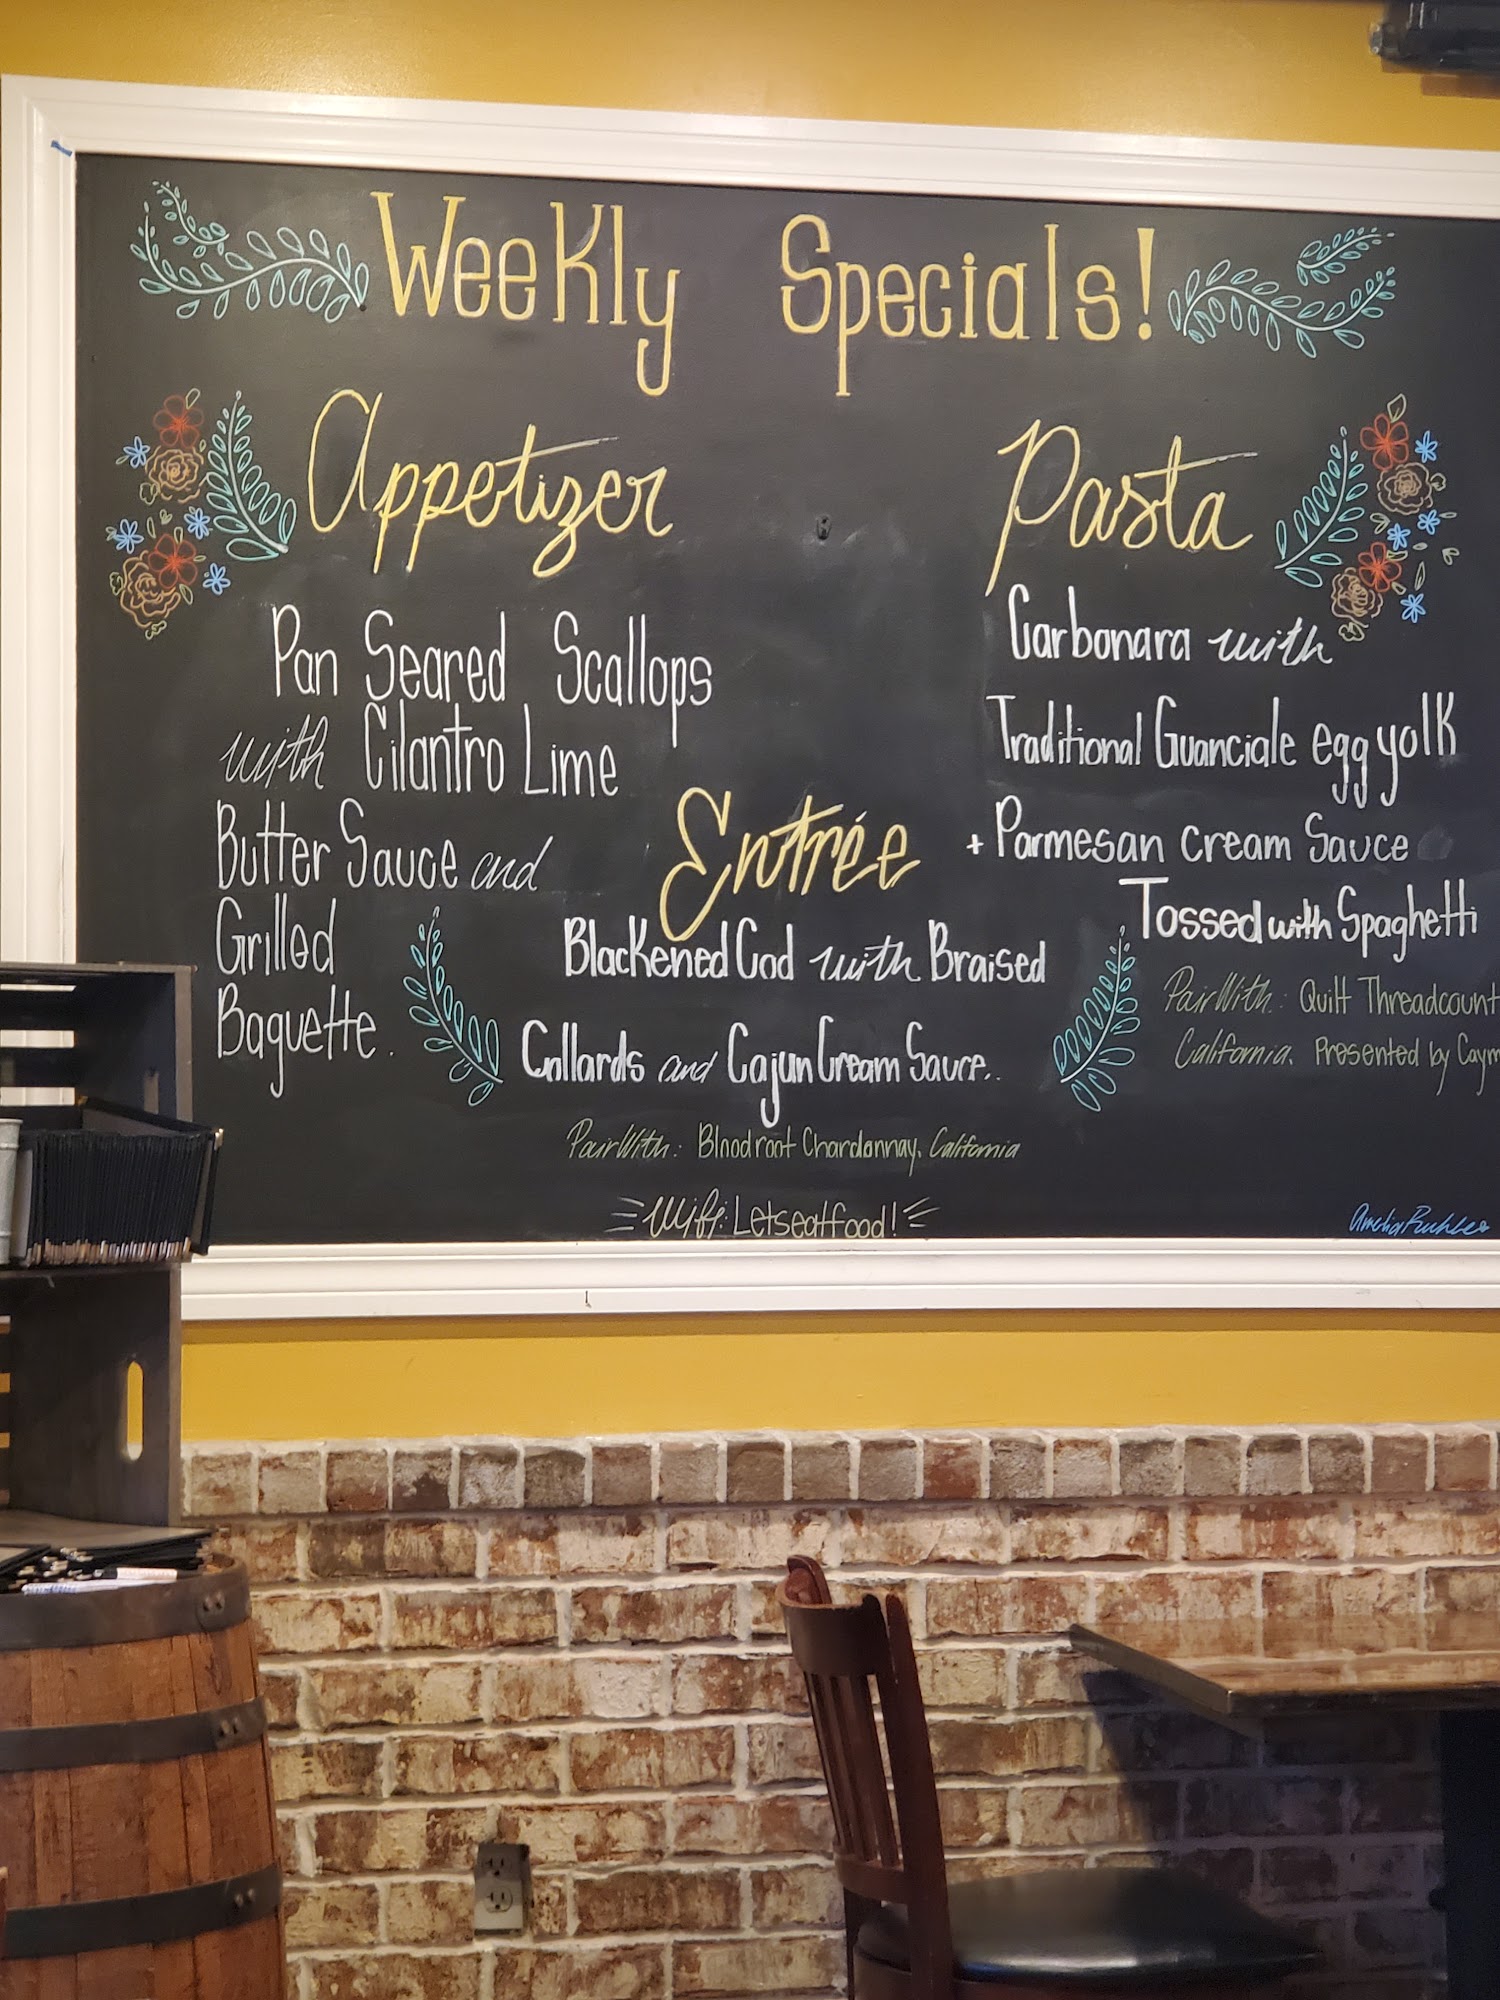 Weekly Specials!
Appetizer
Pan Seared Scallops
with Cilantro Lime
Butter Sauce and
Grilled
Baguette.
Entrée
Blackened Cod with Braised
Collards and Cajun Cream Sauce..
Pair With: Bloodroot Chardonnay, California
Pasta
Carbonara with
Traditional Guanciale egg yolk
+ Parmesan cream Sauce
Tossed with Spaghetti
Pair With: Quilt Threadcount
California. Presented by
Wifi: Letseatfood!
Amelia